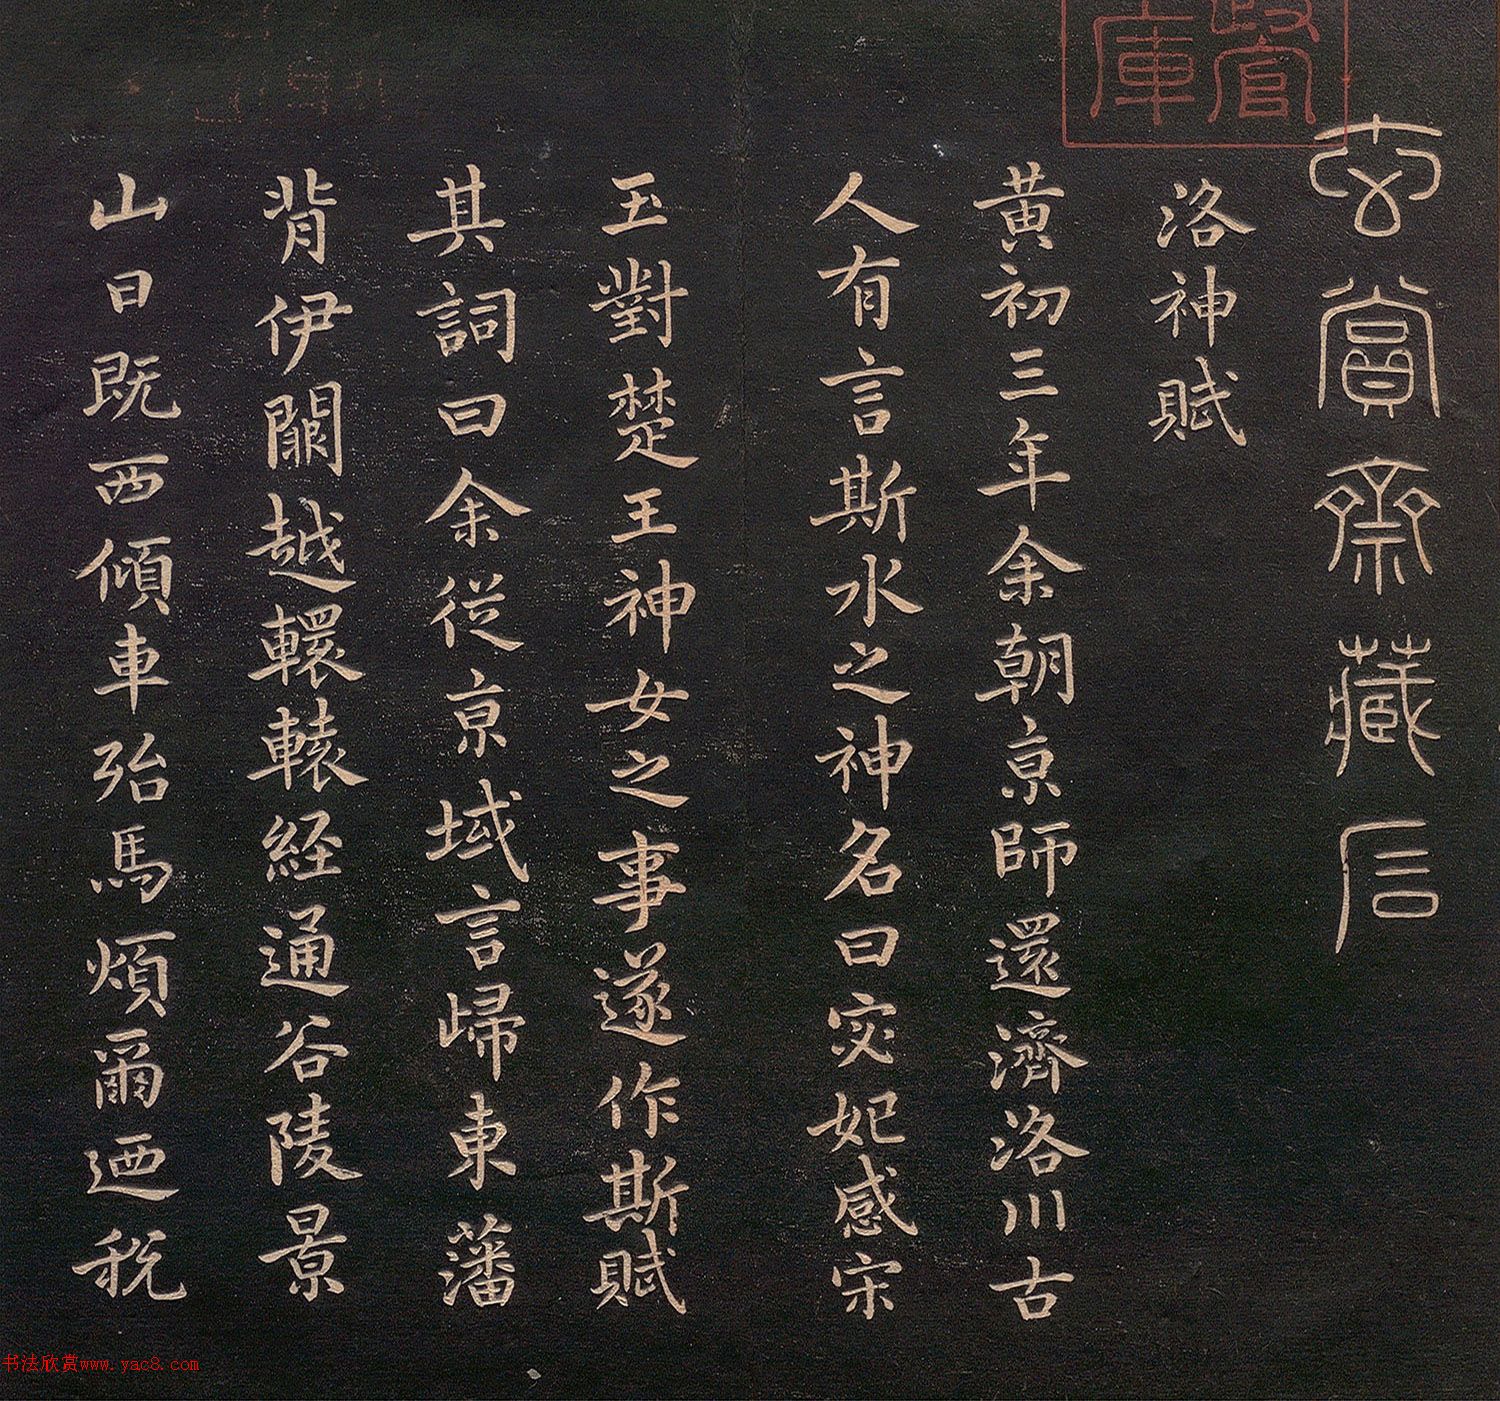 官
庫
玄賞齋藏石
洛神賦
黄初三年余朝亰師還濟洛川古
人有言斯水之神名曰宓妃感宋
玉對楚王神女之事遂作斯賦
其詞曰余従亰域言歸東藩
背伊闕越轘轅経通谷陵景
山日既西傾車殆馬煩爾迺税
书法欣赏www.yac8.com